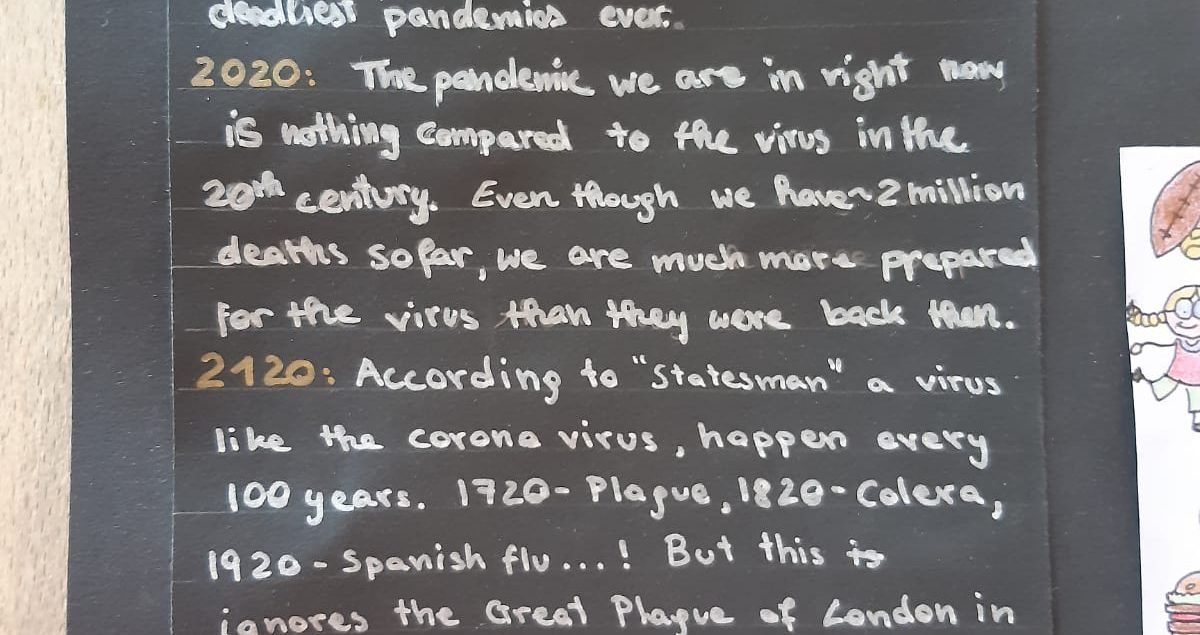 deadliest pandemics ever.
2020: The pandemic we are in right now
is nothing compared to the virus in the
20th century. Even though we have ~2 million
deaths so far, we are much more prepared
for the virus than they were back then.
2120: According to "Statesman" a virus
like the corona virus, happen every
100 years. 1720 - Plague, 1820 - Colera,
1920 - Spanish flu...! But this is
ignores the Great Plague of London in